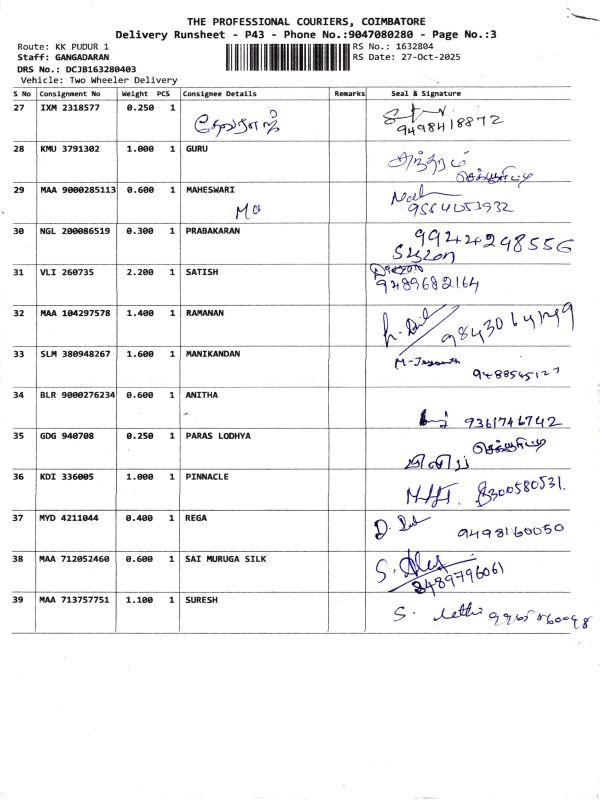 THE PROFESSIONAL COURIERS, COIMBATORE
Delivery Runsheet - P43 - Phone No.:9047080280 - Page No.:3
Route: KK PUDUR 1 RS No.: 1632804
Staff: GANGADARAN RS Date: 27-Oct-2025
DRS No.: DCJB163280403
Vehicle: Two Wheeler Delivery
S No Consignment No Weight PCS Consignee Details Remarks Seal & Signature
27 IXM 2318577 0.250 1
9498418872
28 KMU 3791302 1.000 1 GURU
29 MAA 9000285113 0.600 1 MAHESWARI
30 NGL 200086519 0.300 1 PRABAKARAN 9944248556
31 VLI 260735 2.200 1 SATISH
9489682164
32 MAA 104297578 1.400 1 RAMANAN
33 SLM 380948267 1.600 1 MANIKANDAN
9488545127
34 BLR 9000276234 0.600 1 ANITHA
9361746742
35 GDG 940708 0.250 1 PARAS LODHYA
36 KDI 336005 1.000 1 PINNACLE
8300580531.
37 MYD 4211044 0.400 1 REGA
9498160050
38 MAA 712052460 0.600 1 SAI MURUGA SILK
9489796061
39 MAA 713757751 1.100 1 SURESH
S.